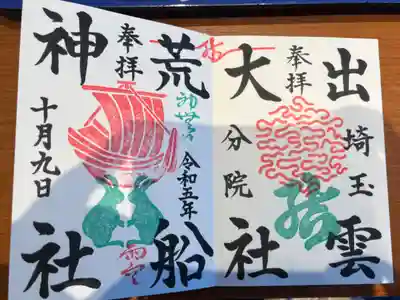 出雲
埼玉
奉拝
結
大社
分院
荒船
令和五年
奉拝
神社
十月九日